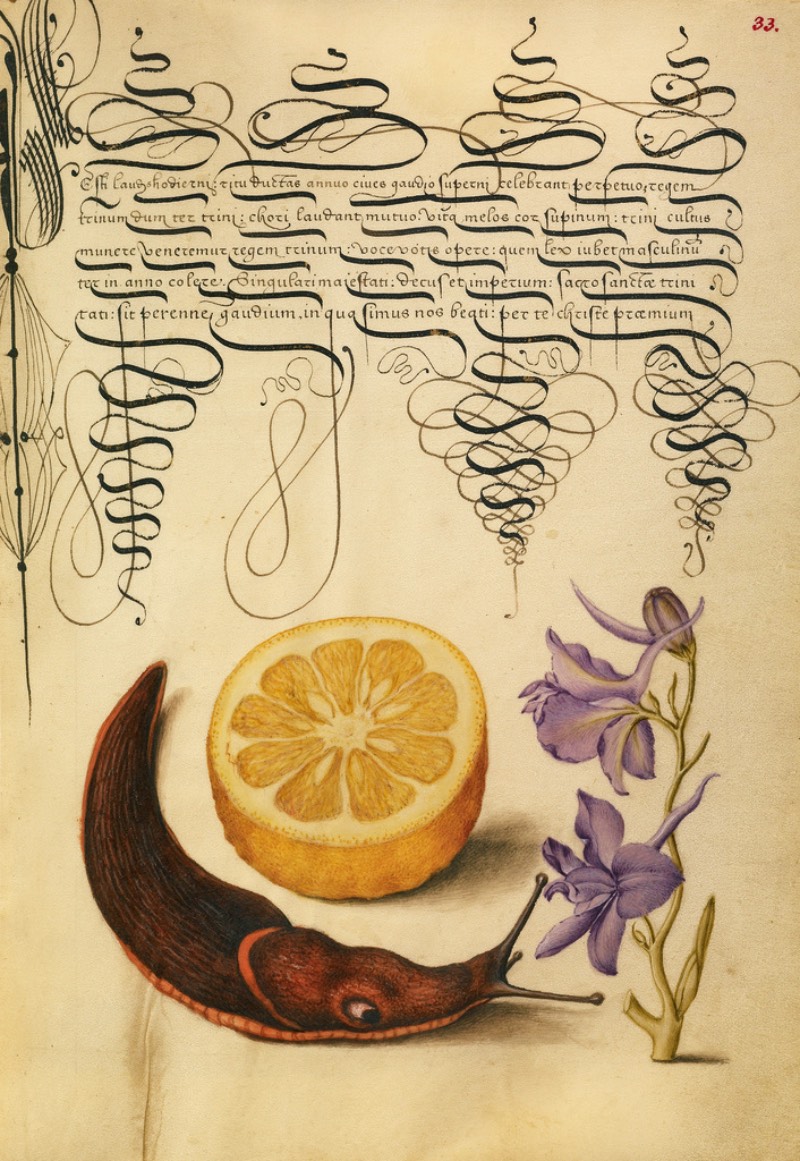 33.
Est laus hodierni: ritu ductas annuo cives gaudio superni celebrant perpetuo, regem
trinum dum ter trini: chori laudant mutuo. Vitq melos cor supinum: trini cultus
munere veneremur regem trinum: voce votis opere: quem lex iubet masculinū
ter in anno colere. Singulari maiestati: decus et imperium: sacro sanctæ trini
tati: sit perenne gaudium, in qua simus nos beati: per te christe præmium